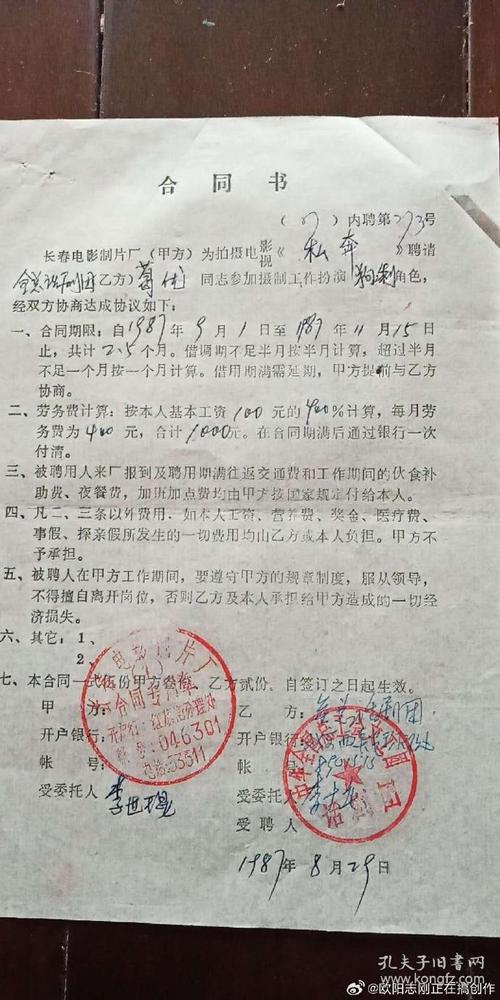 合同书
(87)内聘第273号
长春电影制片厂（甲方）为拍摄电影视《私奔》聘请
全总话剧团乙方）葛优同志参加摄制工作扮演角色，
经双方协商达成协议如下：
一、合同期限：自1987年9月1日至1987年11月15日
止，共计2.5个月。借调期不足半月按半月计算，超过半月
不足一个月按一个月计算。借用期满需延期，甲方提前与乙方
协商。
二、劳务费计算：按本人基本工资100元的400%计算，每月劳
务费为400元，合计1000元。在合同期满后通过银行一次
付清。
三、被聘用人来厂报到及聘用期满往返交通费和工作期间的伙食补
助费、夜餐费，加班加点费均由甲方按国家规定付给本人。
四、凡二、三条以外费用．如本人工资、营养费、奖金、医疗费、
事假、探亲假所发生的一切费用均由乙方或本人负担。甲方不
予承担。
五、被聘人在甲方工作期间，要遵守甲方的规章制度，服从领导，
不得擅自离开岗位，否则乙方及本人承担给甲方造成的一切经
济损失。
六、其它：1、
2、
七、本合同一式伍份甲方叁份，乙方贰份。自签订之日起生效。
甲方：
开户银行：
帐号：
受委托人 李世琨
电影制片厂
合同专用章
046301
电话53311
乙方：全总话剧团
开户银行：
帐号：
受委托人
受聘人
话剧团
1987年8月29日
孔夫子旧书网
kongfz.com
@欧阳志刚正在搞创作